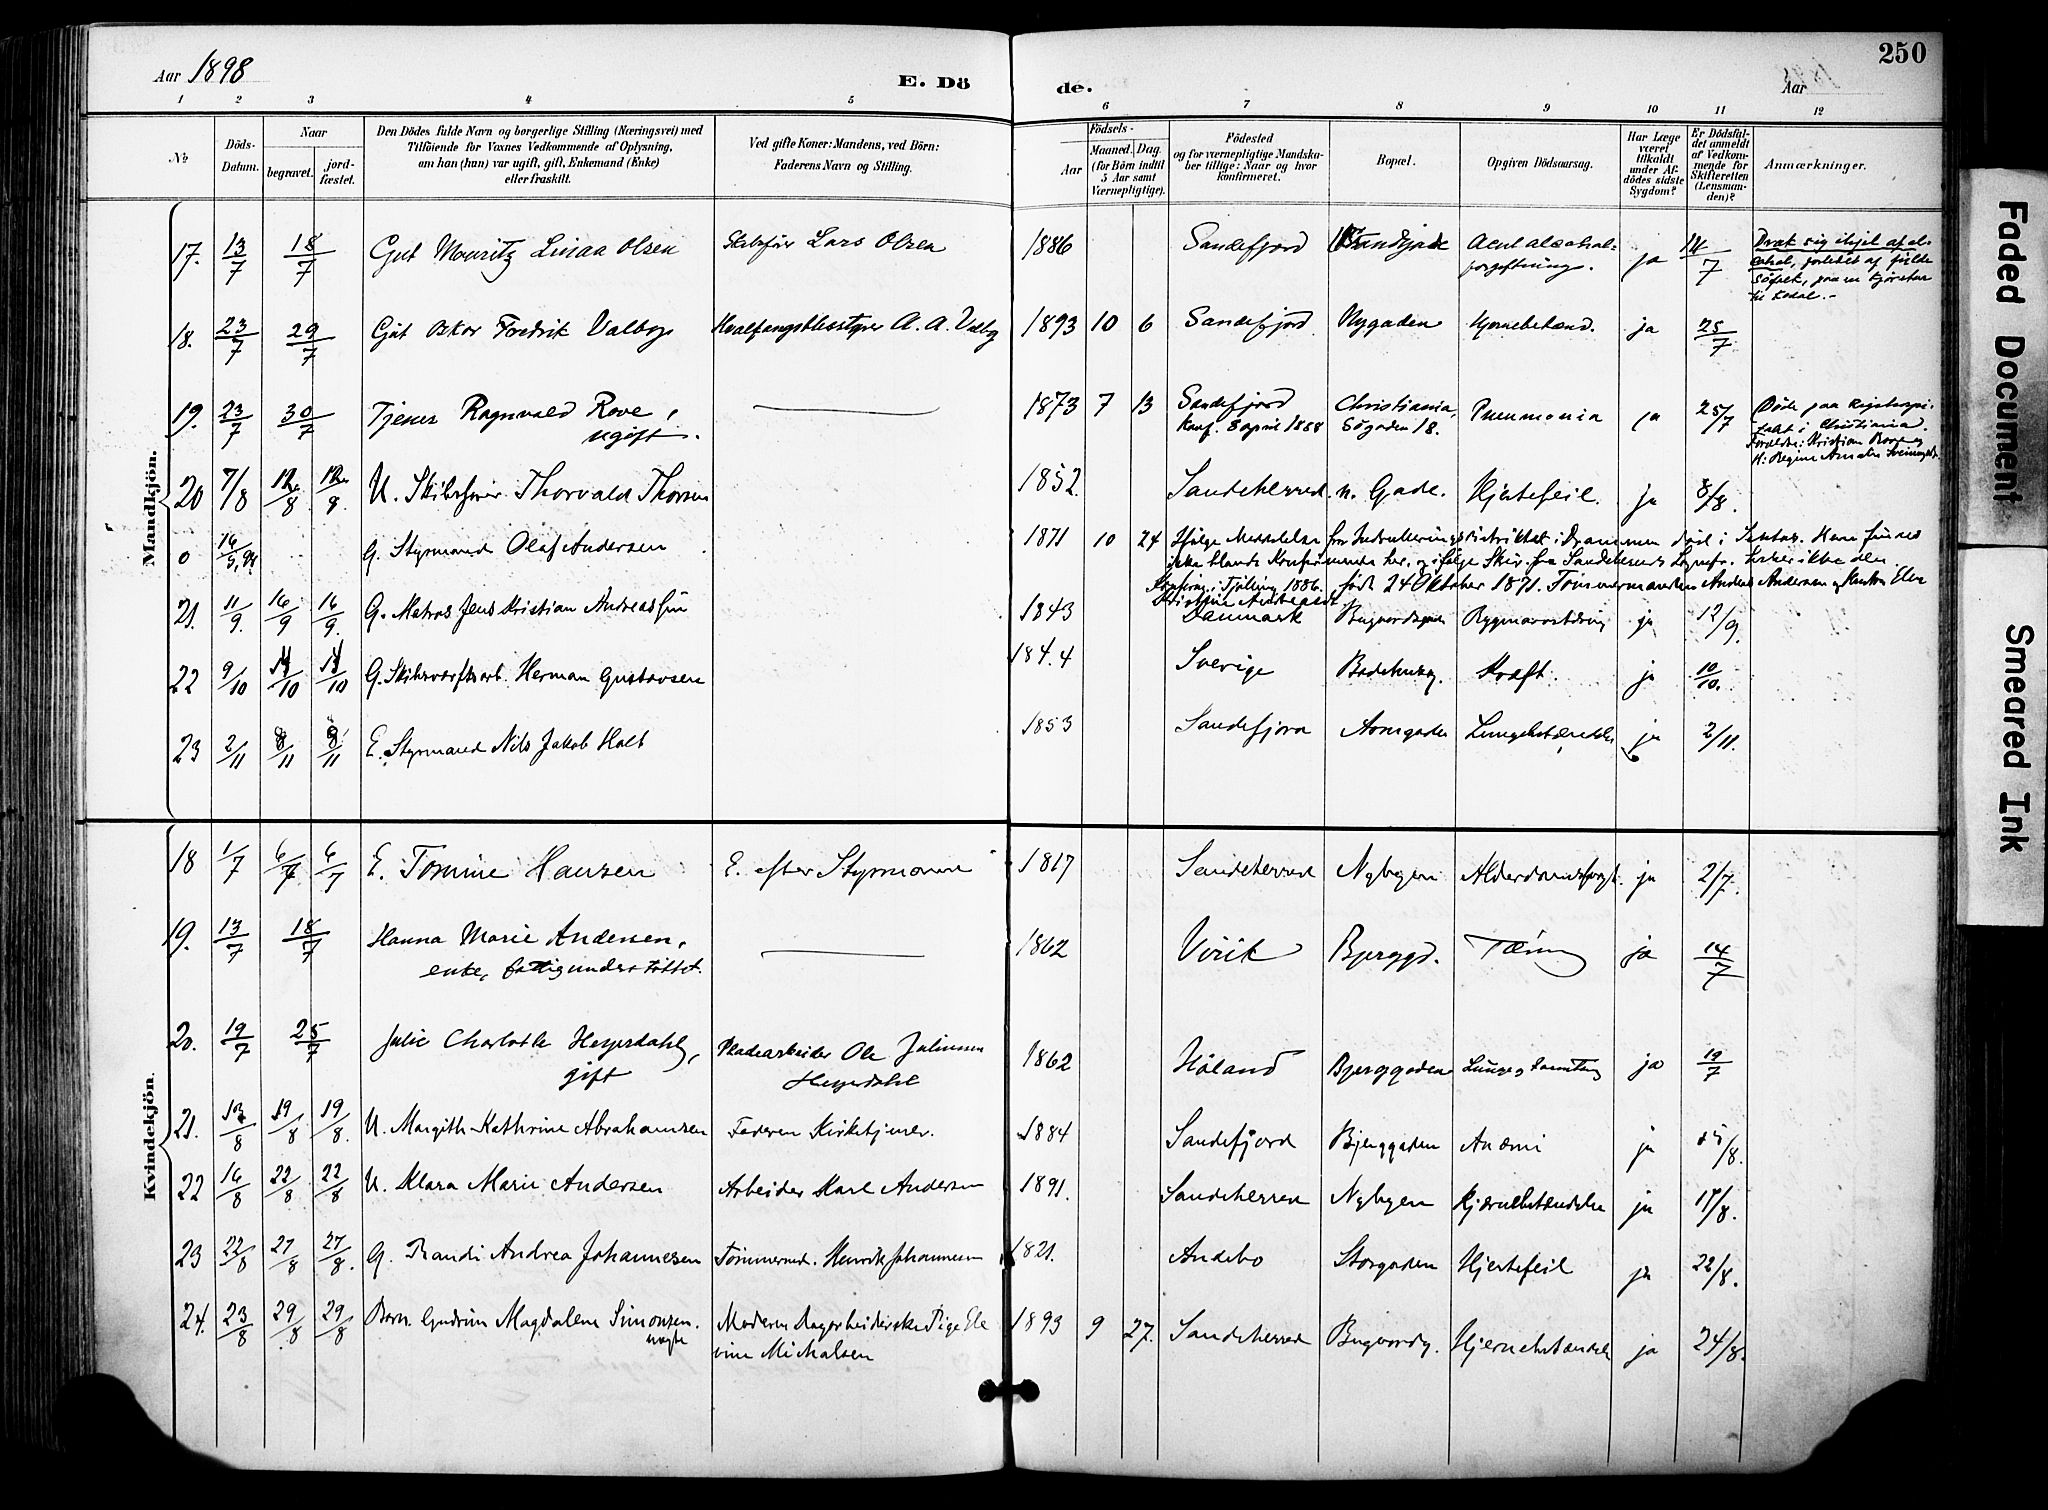 Aar 1898
E. Döde.
Aar
250
1 2 3 4 5 6 7 8 9 10 11 12
№
Döds-Datum.
Naar
begravet.
jord-fæstet.
Den Dödes fulde Navn og borgerlige Stilling (Næringsvei) med
Tilföiende for Voxnes Vedkommende af Oplysning,
om han (hun) var ugift, gift, Enkemand (Enke)
eller fraskilt.
Ved gifte Koner: Mandens, ved Börn:
Faderens Navn og Stilling.
Födsels-
Aar
Maaned. Dag.
(for Börn indtil
5 Aar samt
Værnepligtige).
Födested
og for værnepligtige Mandska-
ber tillige: Naar og hvor
konfirmeret.
Bopæl.
Opgiven Dödsaarsag.
Har Læge
været
tilkaldt
under Af-
dödes sidste
Sygdom?
Er Dödsfal-
det anmeldt
af Vedkom-
mende for
Skifteretten
(Lensman-
den)?
Anmærkninger.
Mandkjön.
17. 13/7 18/7 Gut Mouritz Linaa Olsen Skibsfører Lars Olsen 1886 Sandefjord Acut alcohol-forgiftning. ja 14/7 Drak sig ihjel af al-
cohol, forledet af fulde
Söfolk, paa en Kjöretur
til Kodal.-
18. 23/7 29/7 Gut Oskar Fredrik Valby Hvalfangstbestyrer A. A. Valby 1893 10 6 Sandefjord Nygaden Hjernebetænd. ja 25/7
19. 23/7 30/7 Tjener Ragnvald Rove, ugift. 1873 7 13 Sandefjord Konf. 8 april 1888 Christiania, Søgaden 18. Pneumonia ja 25/7 Døde paa Rigshospi-
talet i Christiania.
Forældre: Kristian Rove og
H: Regine Amalie
20 7/8 12/8 12/8 U. Skibsfører Thorvald Thorsen 1852 Sandeherred n. Gade. Hjertefeil. ja 8/8.
0 16/5,98 G. Styrmand Olaf Andersen 1871 10 24 Ifølge Meddelelse fra Indrulleringsdistriktet i Drammen død i Santos. Han findes
ikke blandt Konfirmanter her, og ifølge Skr. fra Sandeherreds Sognepr. heller ikke der.
Konfirm. i Tjølling 1886. født 24 Oktober 1871. Tømmermanden Anders Andersen og Hustru Elen
Kristine
21. 11/9. 16/9 16/9. G. Matros Jens Kristian Andreassen 1843 Danmark Bugaardsgaden Rygmarvstæring ja 12/9.
22 9/10 14/10 14/10 G. Skibsværftsarb. Herman Gustavsen 1844 Sverige Badehusg. Kræft. ja 10/10.
23 2/11 8/11 8/11 E. Styrmand Nils Jakob Holt 1853 Sandefjord Aarsgaden Lungebetændelse ja 2/11.
Kvindekjön.
18 1/7 6/7 6/7 E. Tomine Hansen E. efter Styrmand 1817 Sandeherred Nybyen Alderdomssvagh. ja 2/7.
19. 13/7 18/7 Hanna Marie Andersen,
enke, fattigunderstöttet. 1862 Virik Bjerggd. Tæring ja 14/7
20. 19/7 25/7 Julie Charlotte Heyerdahl,
gift Pladearbeider Ole Julius
Heyerdahl 1862 Höland Bjerggaden Lunge og ja 19/7
21. 13/8 19/8 19/8. U. Margith Kathrine Abrahamsen Faderen Kirketjener. 1884 Sandefjord Bjerggaden Anæmi ja 15/8.
22 16/8 22/8 22/8 U. Klara Marie Andersen Arbeider Karl Andersen 1891. Sandeherred Nybyen Hjernebetændelse ja 17/8.
23 22/8 27/8 27/8. G. Randi Andrea Johannesen Tømmermd. Henrik Johannesen 1821. Andebo Storgaden Hjertefeil ja 22/8.
24. 23/8 29/8 29/8 Barn Gudrun Magdalene Simonsen.
uægte Moderen Dagarbeiderske Pige Ele
vine Michalsen 1893 9 27. Sandeherred Bugaardg. Hjernebetændelse ja 24/8.
Faded Document
Smeared Ink